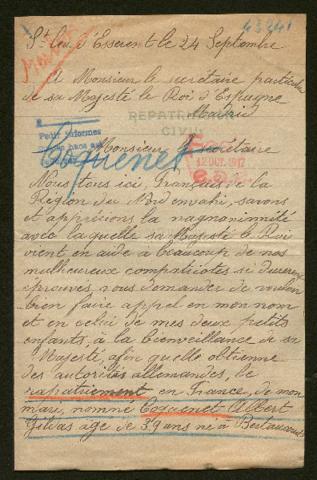 43241
St Leu d'Esserent le 24 Septembre
A Monsieur le secretaire particulier
de sa Majesté le Roi d'Espagne
Madrid
REPATRIA
CIVIL
Pedir informes
Monsieur le secrétaire
Coquenet
12 OCT. 1917
Nous tous ici, Français de la
Région du Nord envahi, savons
et apprécions la magnanimité
avec laquelle sa Majesté le Roi
vient en aide à beaucoup de nos
malheureux compatriotes si durement
éprouvés, vous demander de vouloir
bien faire appel en mon nom
et en celui de mes deux petits
enfants, à la bienveillance de sa
Majesté, afin quelle obtienne
des autorités allemandes, le
rapatriement en France, de mon
mari, nommé Coquenet Albert
age de 39 ans né à